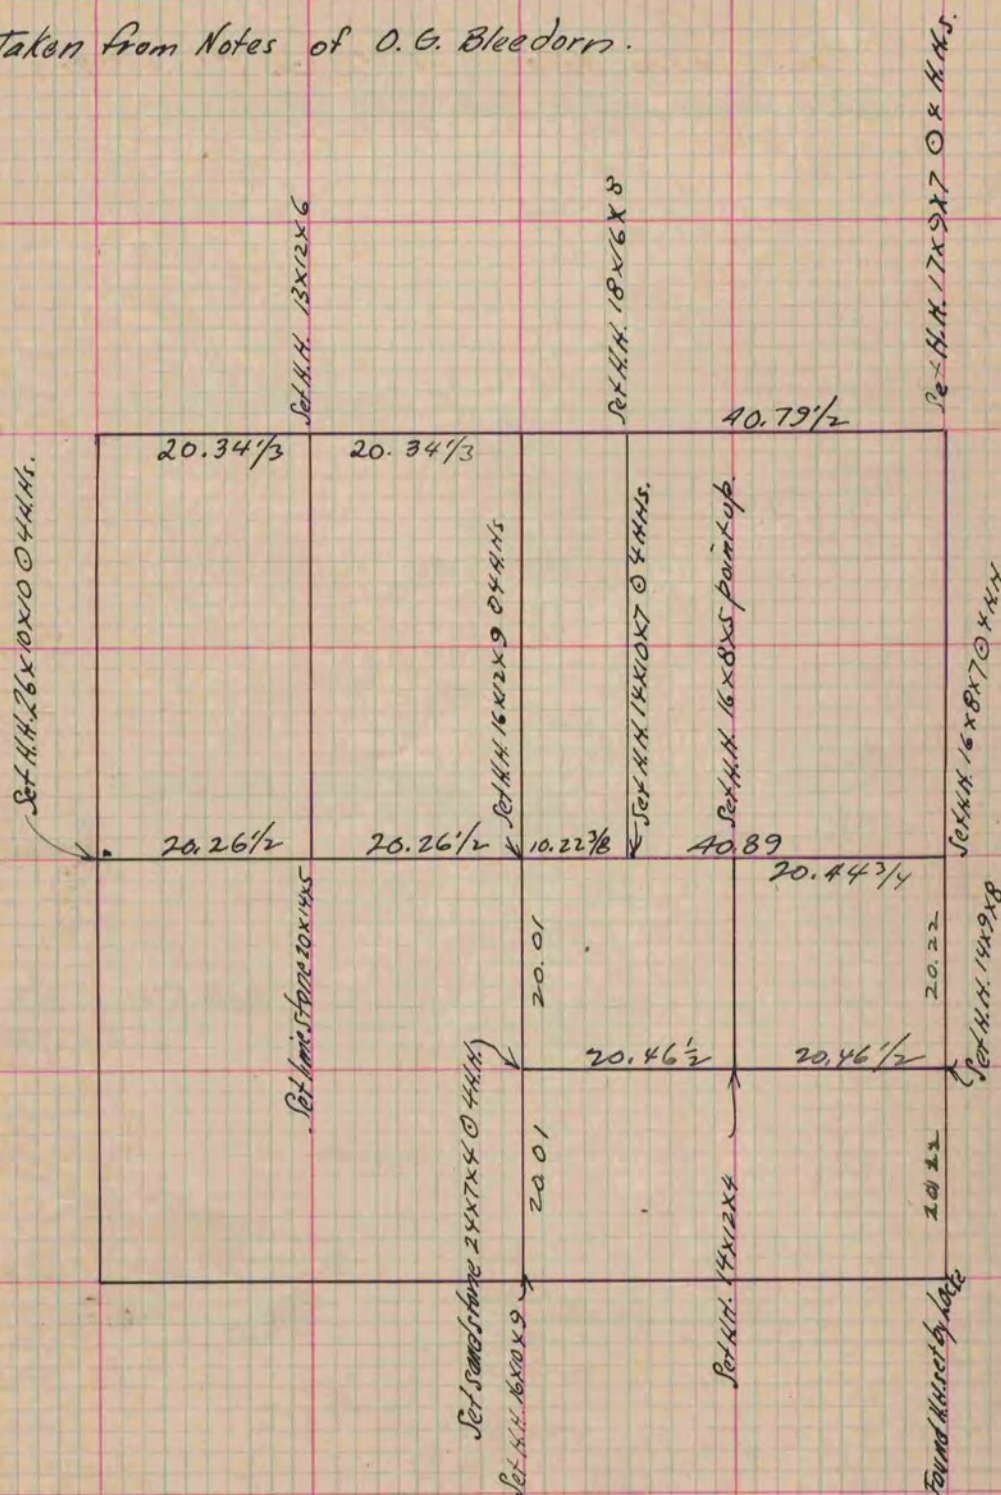 Taken from Notes of O.G. Bleedorn.
Set H.H. 13x12x6
Set H.H. 18x16x8
Set H.H. 17x9x7 ⊙ 4 H.H.s.
40.79 1/2
20.34 1/3
20.34 1/3
Set H.H. 26x10x10 ⊙ 4 H.Hs.
Set H.H. 16x12x9 ⊙ 4 H.Hs
Set H.H. 14x10x7 ⊙ 4 HHs.
Set H.H. 16x8x5 point up.
Set H.H. 16x8x7 ⊙ 4 HH
20.26 1/2
20.26 1/2
10.22 3/8
40.89
20.44 3/4
Set limestone 20x14x5
20.01
20.22
Set H.H. 14x9x8
20.46 1/2
20.46 1/2
Set sandstone 24x7x4 ⊙ 4 H.H.
20.01
20.22
Set H.H. 14x12x4
Set H.H. 16x10x9
Found H.H. set by